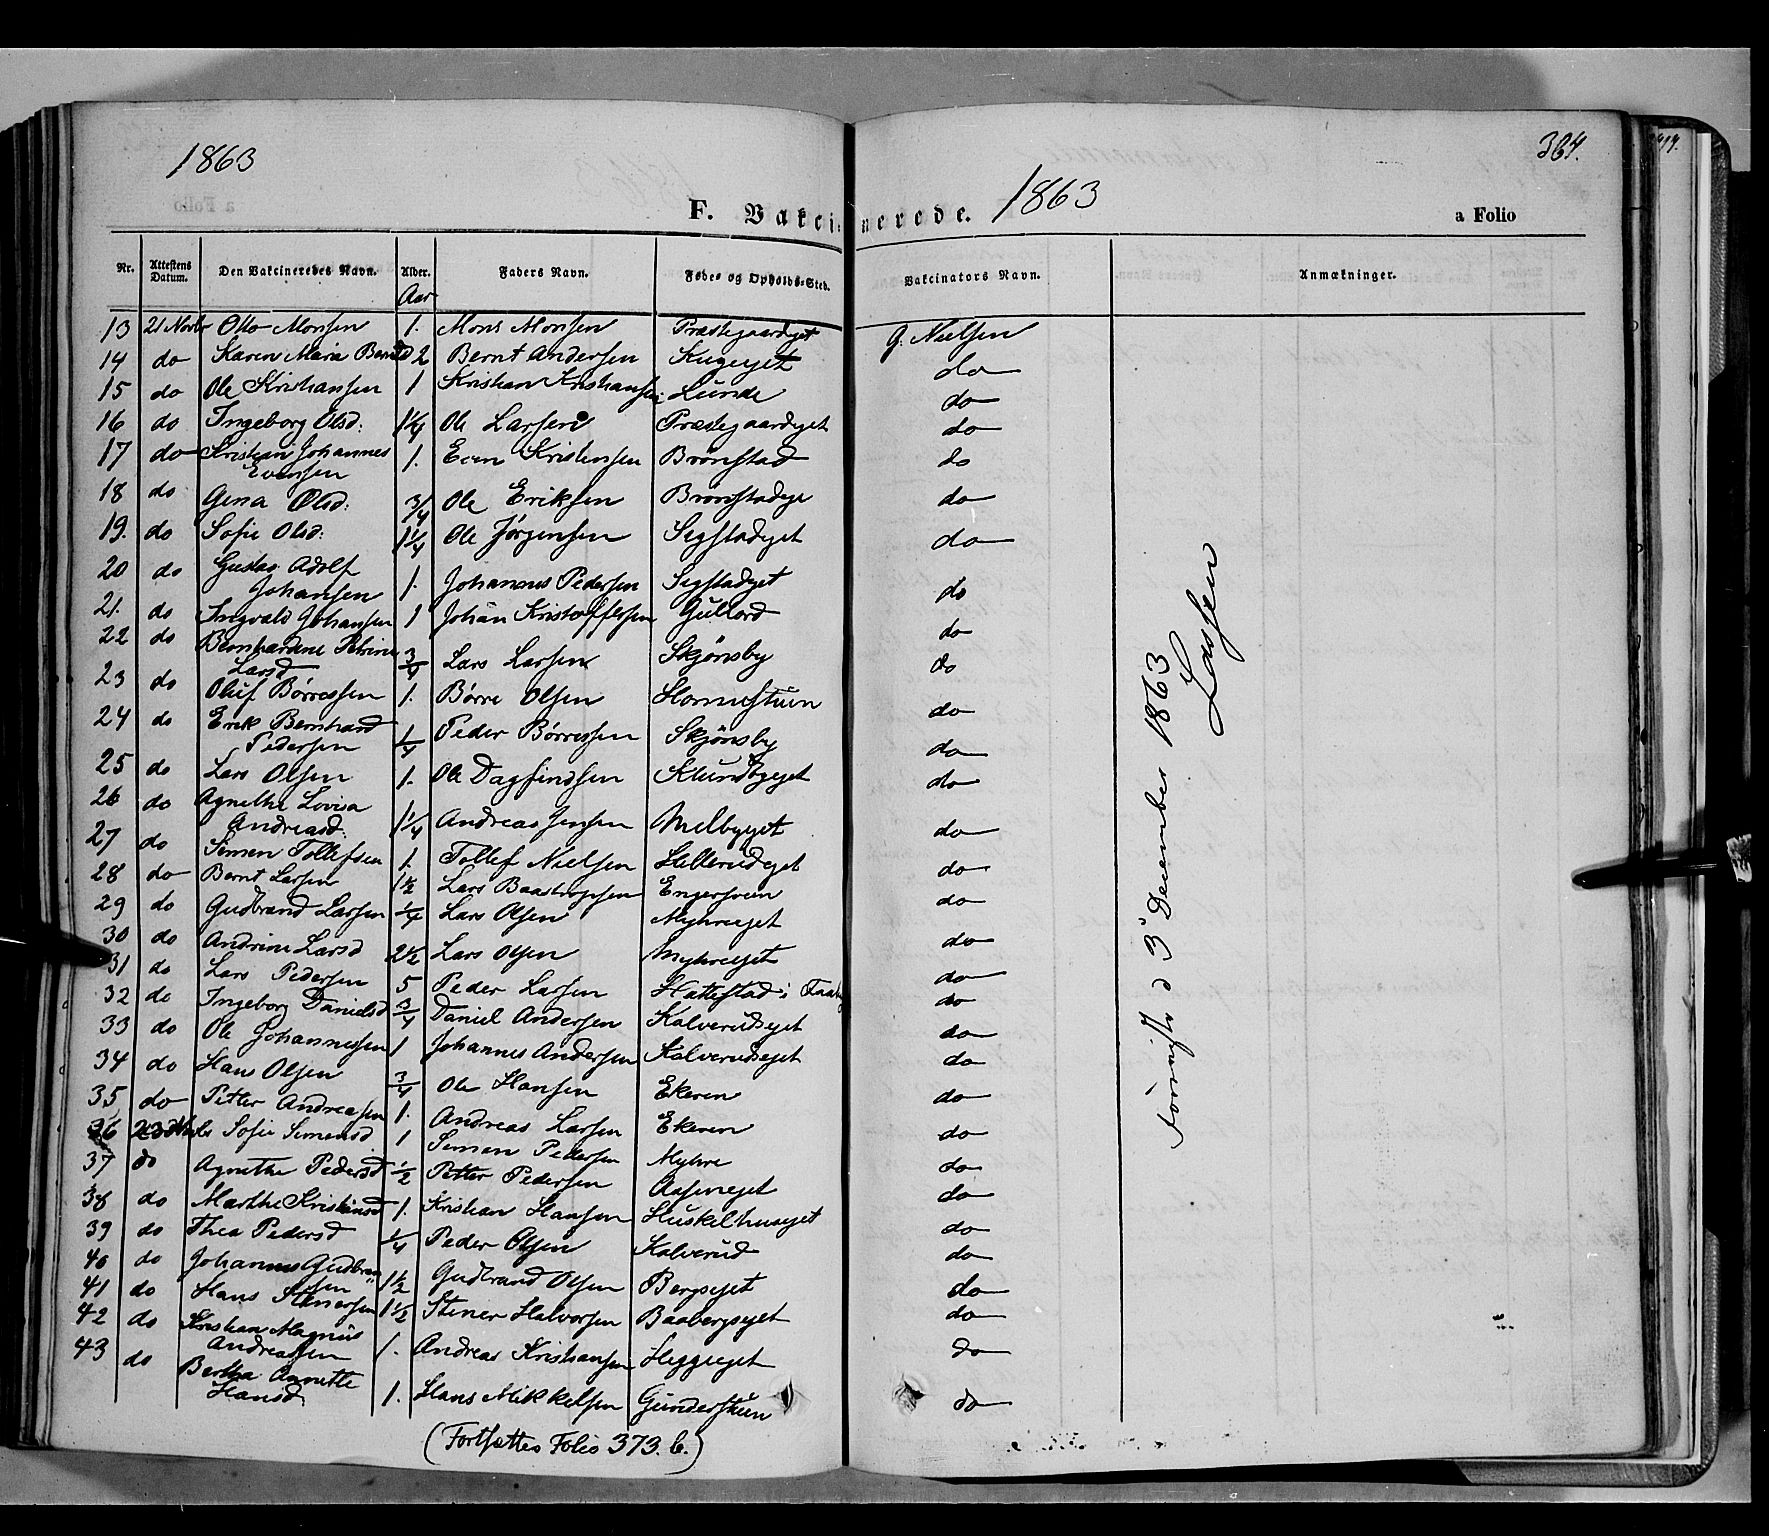 1863
364.
F. Vakcinerede. 1863
a Folio
Nr. Attestens Datum. Den Vakcineredes Navn. Alder. Faders Navn. Føde- og Opholds-Sted. Vakcinators Navn. Anmærkninger.
Aar
13 21 Novbr Otto Monsen 1. Mons Monsen Præstegaardejet G. Nielsen
14 do Karen Maria Berntsd 2 Bernt Andersen do
15 do Ole Kristiansen 1 Kristian Kristiansen Lunde do
16 do Ingeborg Olsd: 1 1/4 Ole Larsen Præstegaardejet do
17 do Kristian Johannes 1. Even Kristensen Brønstad do
Evensen
18 do Gina Olsd: 3/4 Ole Eriksen Brønstadeje do
19. do Sofie Olsd: 1 1/4 Ole Jørgensen Sigstadejet do
20 do Gustav Adolf 1. Johannes Pedersen Sigstadejet do
Johansen
21. do Ingvald Johansen 1 Johan Kristoffersen Gullord do
22 do Bernhardine Petrine 3/4 Lars Larsen Skjønsby do
Larsd
23 do Oluf Børresen 1. Børre Olsen Hornistuen do
24 do Erik Bernhard 1/4 Peder Børresen Skjønsby do
Pedersen
25 do Lars Olsen 1. Ole Dagfindsen Klundbyejet do
26 do Agnethe Lovisa 1 1/4 Andreas Jensen Melbyejet do
Andreasd:
27 do Simen Tollefsen 1. Tollef Nielsen Hellerudejet do
28 do Bernt Larsen 1 1/2 Lars Baastropsen Engersveen do
29 do Gudbrand Larsen 1/4 Lars Olsen Myhreejet do
30 do Andrine Larsd 2 1/2 Lars Olsen Myhreejet do
31 do Lars Pedersen 5 Peder Larsen Hattestad i Faaberg do
32 do Ingeborg Danielsd 3/4 Daniel Andersen Kalverudsejet do
33 do Ole Johannessen 1 Johannes Andersen Kalverudsejet do
34 do Hans Olsen 3/4 Ole Hansen Ekeren do
35 do Petter Andreasen 1. Andreas Larsen Ekeren do
36 23 Novbr Sofie Simensd 1 Simen Pedersen Myhre do
37 do Agnethe Pedersd 1/2 Petter Pedersen Aasenejet do
38 do Marthe Kristiansd 1. Kristian Hansen Huskelhusejet do
39 do Thea Pedersd 1/4 Peder Olsen Kalverud do
40 do Johannes Gudbran= 1 1/2 Gudbrand Olsen Bergsejet do
sen
41 do Hans Stenersen 1 1/2 Stener Halvorsen Baabergsejet do
42 do Kristian Magnus 1. Andreas Kristiansen Heggeejet do
Andreassen
43 do Bertha Annette 1. Hans Mikkelsen Gunderstuen do
Hansd
(Fortsættes Folio 373. b.)
d 3 December 1863
Lassen